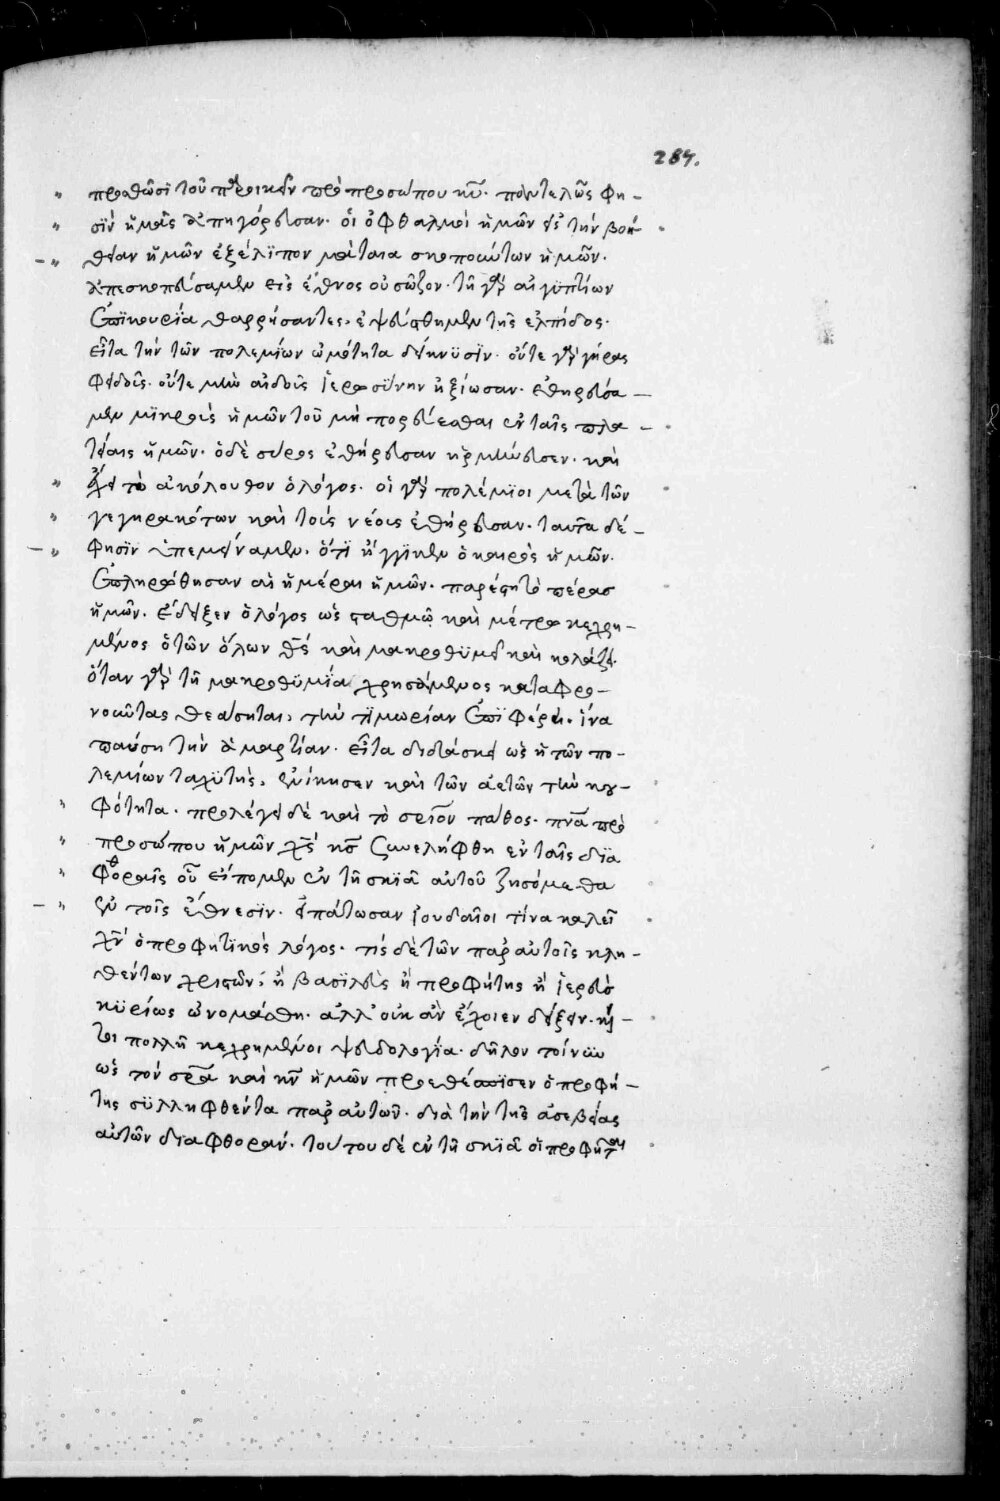 284.
προθῶσι τοῦ πατρικοῦ πρὸ προσώπου κυ. παντελῶς φη-
σὶν ἡμᾶς ἀπηγόρευσαν. οἱ ὀφθαλμοὶ ἡμῶν εἰς τὴν βοή
θειαν ἡμῶν ἐξέλιπον μάταια σκοπούντων ἡμῶν.
ἀπεσκοπεύσαμεν εἰς ἔθνος οὐ σῶζον. τῇ γὰρ αἰγυπτίων
ἐπικουρία θαρρήσαντες, ἐψεύσθημεν τῆς ἐλπίδος.
εἶτα τὴν τῶν πολεμίων ὠμότητα δείκνυσϊν. οὔτε γὰρ γήρας
φειδοῖς. οὔτε μὴν αἰδοῦς ἱεροσύνην ἠξίωσαν. ἐθηρεύσα-
μεν μϊκροὺς ἡμῶν τοῦ μὴ πορεύεσθαι ἐν ταῖς πλα-
τείαις ἡμῶν. ὁ δὲ σύρος ἐθήρευσαν ἡρμήνευσεν. καὶ
ἔχει τὸ ἀκόλουθον ὁ λόγος. οἱ γὰρ πολέμϊοι μετὰ τῶν
γεγηρακότων καὶ τοὺς νέους ἐθήρευσαν. ταῦτα δέ-
φησϊν ὑπεμείναμεν. ὅτϊ ἤγγϊκεν ὁ καιρὸς ἡμῶν.
ἐπληρώθησαν αἱ ἡμέραι ἡμῶν. παρέστη τὸ πέρασ
ἡμῶν. ἔδειξεν ὁ λόγος ὡς σταθμῶ καὶ μέτρω κεχρη-
μένος ὁ τῶν ὅλων θς καὶ μακροθϋμεῖ καὶ κολάζει.
ὅταν γὰρ τῆ μακροθϋμία χρησάμενος καταφρο-
νοῦντας θεάσηται, τὴν τϊμωρίαν ἐπϊφέρει. ἵνα
παύση τὴν ἁμαρτίαν. εἶτα διδάσκει ὡς ἡ τῶν πο-
λεμίων ταχϋτὴς, ἐνίκησεν καὶ τῶν ἀετῶν τὴν κου-
φότητα. προλέγει δὲ καὶ τὸ σριον πάθος. πνα πρὸ
προσώπου ἡμῶν χς κς συνελήφθη ἐν ταῖς δϊα
φθοραῖς οὗ εἴπομεν ἐν τῇ σκϊᾶ αὐτοῦ ζησόμεθα
ἐν τοῖς ἔθνεσϊν. εἰπάτωσαν ἰουδαῖοι τίνα καλεῖ
χν ὁ προφητϊκὸς λόγος. τίς δὲ τῶν παρ' αὐτοῖς κλη-
θέντων χριστῶν, ἢ βασϊλεὺς ἢ προφήτης ἢ ἱερεὺς
κϋρίως ὠνομάσθη. ἀλλ' οὐκ ἂν ἔχοιεν δεῖξειν. κἄ-
τοι πολλῆ κεχρημένοι ψευδολογία. δῆλον τοίνυν
ὡς τὸν σρα καὶ κν ἡμῶν προεθέσπισεν ὁ προφή-
της σϋλληφθέντα παρ' αὐτῶν. διὰ τὴν τῆς ἀσεβείας
αὐτῶν δϊαφθοράν. τούτου δὲ ἐν τῆ σκϊᾶ οἱ προφῆται